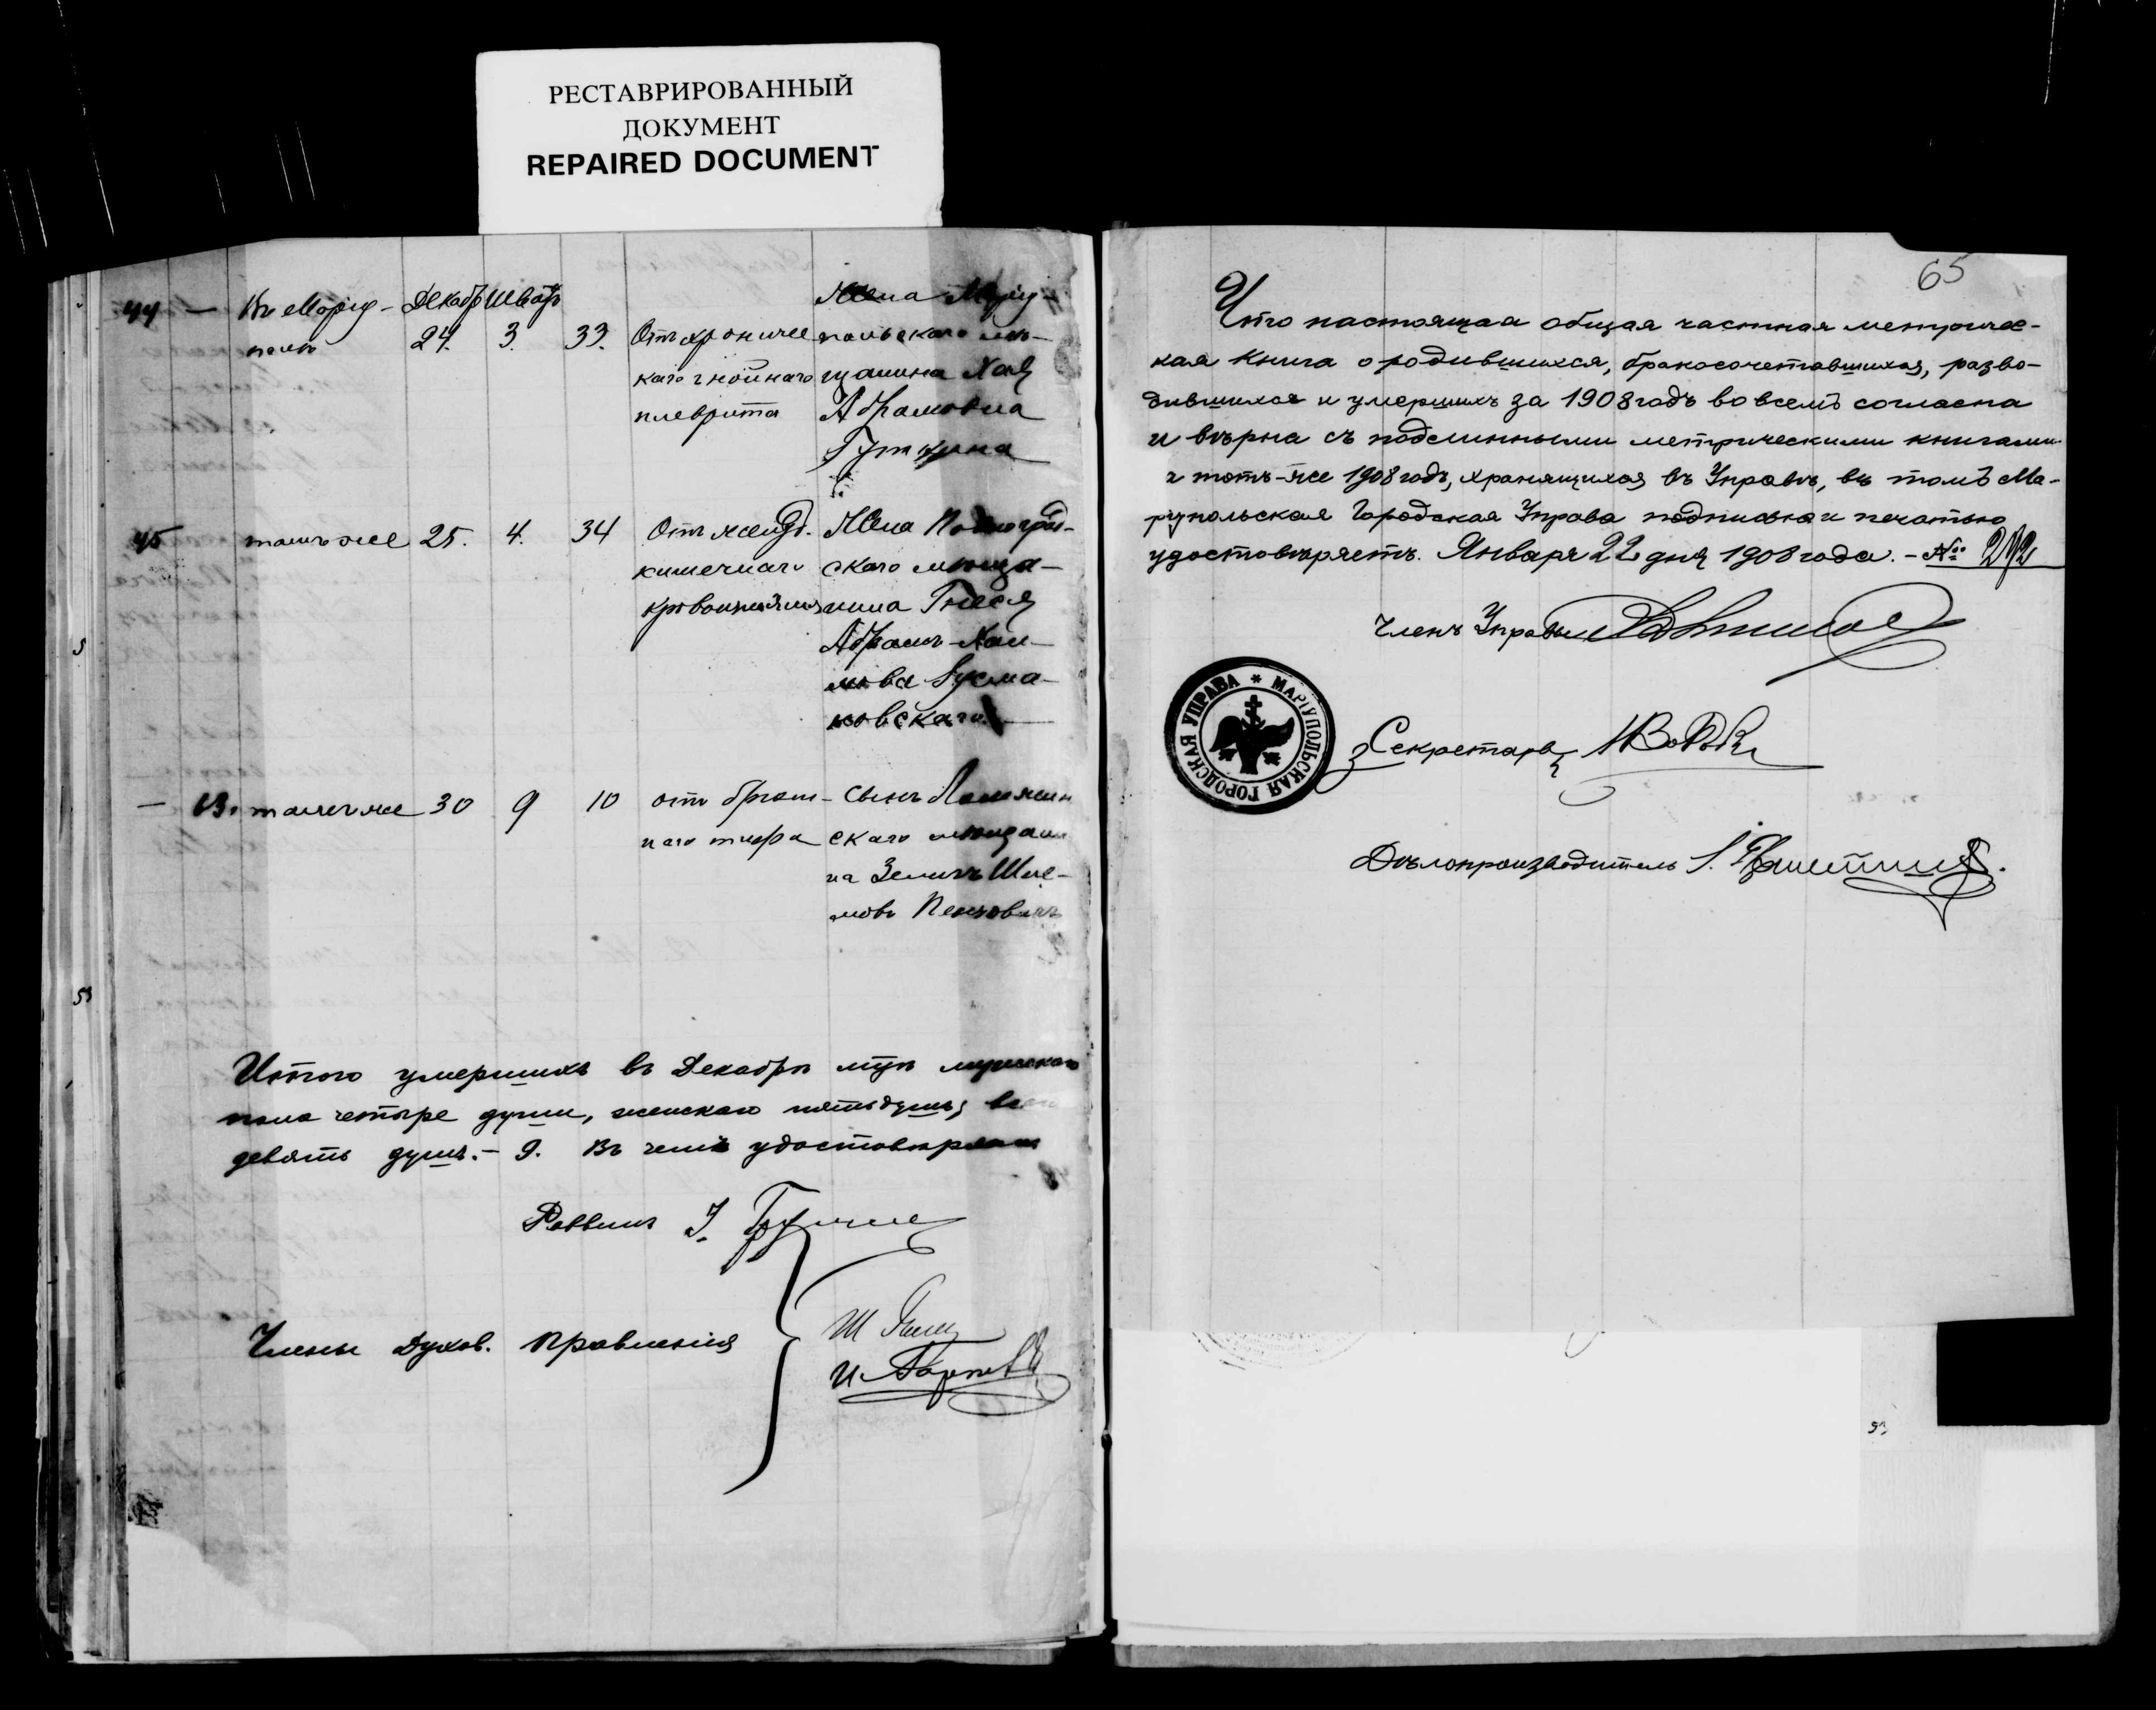 РЕСТАВРИРОВАННЫЙ
ДОКУМЕНТ
REPAIRED DOCUMENT
44 — Въ Маріу- Декабр Шваръ Жена Маріу-
полѣ 24. 3. 39. Отъ хроничес польскаго мѣ-
каго гнойнаго щанина Хая
плеврита Абрамовна
Гуткина
45 тамъ же 25. 4. 34 Отъ желуд. Жена
кишечнаго скаго мѣща-
нина Гнеся
Абрамъ-Хаи-
мова
ковскаго
— 13. тамъ же 30 9 10 отъ брюш- сынъ
наго тифа скаго мѣщани
на Зелигъ Шле-
мовъ
Итого умершихъ въ Декабрѣ м-цѣ мужскаго
пола четыре души, женскаго пять душъ,
девять душъ. – 9. Въ чемъ удостовѣряемъ
Раввинъ
Члены Духов. Правленія
65
Что настоящая общая частная метричес-
кая книга о родившихся, бракосочетавшихся, разво-
дившихся и умершихъ за 1908 годъ во всемъ согласна
и вѣрна съ подлинными метрическими книгами
тотъ-же 1908 годъ, хранящихся въ Управѣ, въ томъ Ма-
ріупольская Городская Управа подписью и печатью
удостовѣряетъ. Января 22 дня 1908 года. – №
Членъ Управы
МАРІУПОЛЬСКАЯ ГОРОДСКАЯ УПРАВА
Секретарь
Дѣлопроизводитель